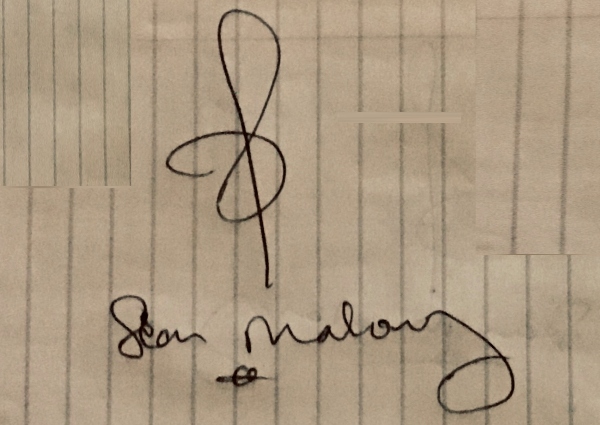 Sean Malony